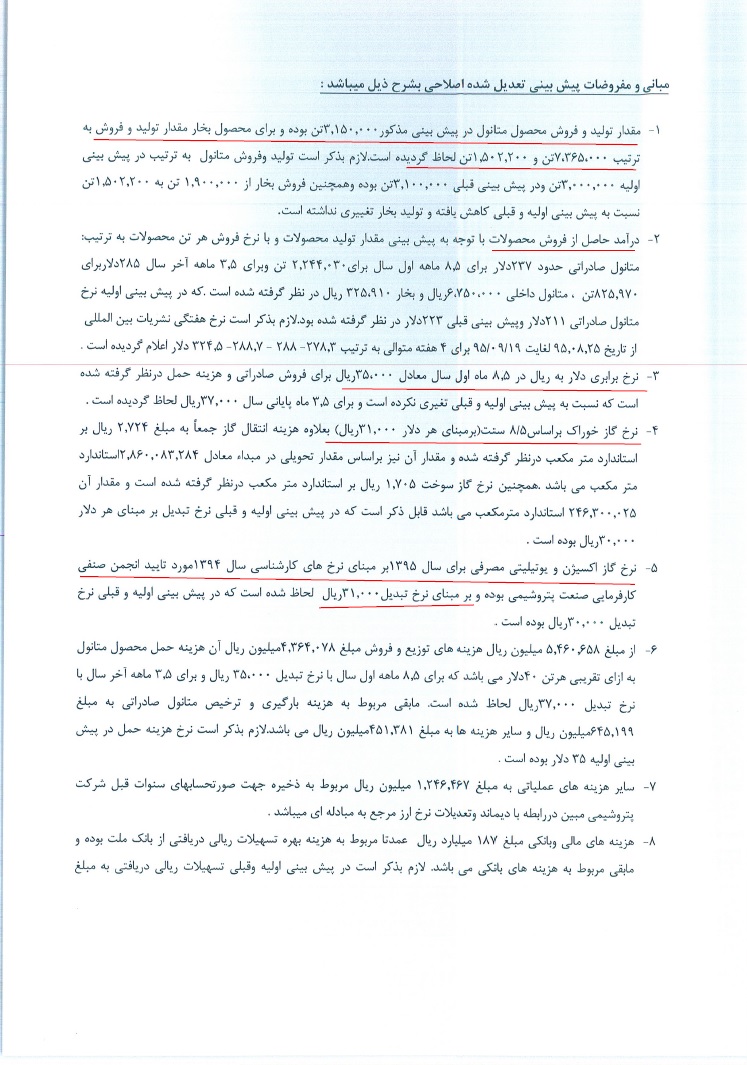 مبانی و مفروضات پیش بینی تعدیل شده اصلاحی بشرح ذیل میباشد :
۱- مقدار تولید و فروش محصول متانول در پیش بینی مذکور۳,۱۵۰,۰۰۰تن بوده و برای محصول بخار مقدار تولید و فروش به
ترتیب ۷,۳۶۵,۰۰۰تن و ۱,۵۰۲,۲۰۰تن لحاظ گردیده است.لازم بذکر است تولید وفروش متانول به ترتیب در پیش بینی
اولیه ۳,۰۰۰,۰۰۰تن ودر پیش بینی قبلی ۳,۱۰۰,۰۰۰تن بوده وهمچنین فروش بخار از ۱,۹۰۰,۰۰۰ تن به ۱,۵۰۲,۲۰۰تن
نسبت به پیش بینی اولیه و قبلی کاهش یافته و تولید بخار تغییری نداشته است.
۲- درآمد حاصل از فروش محصولات با توجه به پیش بینی مقدار تولید محصولات و با نرخ فروش هر تن محصولات به ترتیب:
متانول صادراتی حدود ۲۳۷دلار برای ۸,۵ ماهه اول سال برای۲,۲۴۴,۰۳۰ تن وبرای ۳,۵ ماهه آخر سال ۲۸۵دلاربرای
۸۲۵,۹۷۰تن ، متانول داخلی ۶,۷۵۰,۰۰۰ریال و بخار ۳۲۵,۹۱۰ ریال در نظر گرفته شده است .که در پیش بینی اولیه نرخ
متانول صادراتی ۲۱۱دلار وپیش بینی قبلی ۲۲۳دلار در نظر گرفته شده بود.لازم بذکر است نرخ هفتگی نشریات بین المللی
از تاریخ ۹۵,۰۸,۲۵ لغایت ۹۵/۰۹/۱۹ برای ۴ هفته متوالی به ترتیب ۲۷۸,۳- ۲۸۸ - ۲۸۸,۷- ۳۲۴,۵ دلار اعلام گردیده است .
۳- نرخ برابری دلار به ریال در ۸,۵ ماه اول سال معادل ۳۵,۰۰۰ریال برای فروش صادراتی و هزینه حمل درنظر گرفته شده
است که نسبت به پیش بینی اولیه و قبلی تغیری نکرده است و برای ۳,۵ ماه پایانی سال ۳۷,۰۰۰ریال لحاظ گردیده است .
۴- نرخ گاز خوراک براساس۸/۵ سنت(برمبنای هر دلار ۳۱,۰۰۰ریال) بعلاوه هزینه انتقال گاز جمعاً به مبلغ ۲,۷۲۴ ریال بر
استاندارد متر مکعب درنظر گرفته شده و مقدار آن نیز براساس مقدار تحویلی در مبداء معادل ۲,۸۶۰,۰۸۳,۲۸۴استاندارد
متر مکعب می باشد .همچنین نرخ گاز سوخت ۱,۷۰۵ ریال بر استاندارد متر مکعب درنظر گرفته شده است و مقدار آن
۲۴۶,۳۰۰,۰۲۵ استاندارد مترمکعب می باشد قابل ذکر است که در پیش بینی اولیه و قبلی نرخ تبدیل بر مبنای هر دلار
۳۰,۰۰۰ریال بوده است .
۵- نرخ گاز اکسیژن و یوتیلیتی مصرفی برای سال ۱۳۹۵بر مبنای نرخ های کارشناسی سال ۱۳۹۴مورد تایید انجمن صنفی
کارفرمایی صنعت پتروشیمی بوده و بر مبنای نرخ تبدیل۳۱,۰۰۰ریال لحاظ شده است که در پیش بینی اولیه و قبلی نرخ
تبدیل ۳۰,۰۰۰ریال بوده است .
۶- از مبلغ ۵,۴۶۰,۶۵۸ میلیون ریال هزینه های توزیع و فروش مبلغ ۴,۳۶۴,۰۷۸میلیون ریال آن هزینه حمل محصول متانول
به ازای تقریبی هرتن ۴۰دلار می باشد که برای ۸,۵ ماهه اول سال با نرخ تبدیل ۳۵,۰۰۰ ریال و برای ۳,۵ ماهه آخر سال با
نرخ تبدیل ۳۷,۰۰۰ریال لحاظ شده است. مابقی مربوط به هزینه بارگیری و ترخیص متانول صادراتی به مبلغ
۶۴۵,۱۹۹میلیون ریال و سایر هزینه ها به مبلغ ۴۵۱,۳۸۱میلیون ریال می باشد.لازم بذکر است نرخ هزینه حمل در پیش
بینی اولیه ۳۵ دلار بوده است .
۷- سایر هزینه های عملیاتی به مبلغ ۱,۲۴۶,۴۶۷ میلیون ریال مربوط به ذخیره جهت صورتحسابهای سنوات قبل شرکت
پتروشیمی مبین دررابطه با دیماند وتعدیلات نرخ ارز مرجع به مبادله ای میباشد .
۸- هزینه های مالی وبانکی مبلغ ۱۸۷ میلیارد ریال عمدتا مربوط به هزینه بهره تسهیلات ریالی دریافتی از بانک ملت بوده و
مابقی مربوط به هزینه های بانکی می باشد. لازم بذکر است در پیش بینی اولیه وقبلی تسهیلات ریالی دریافتی به مبلغ